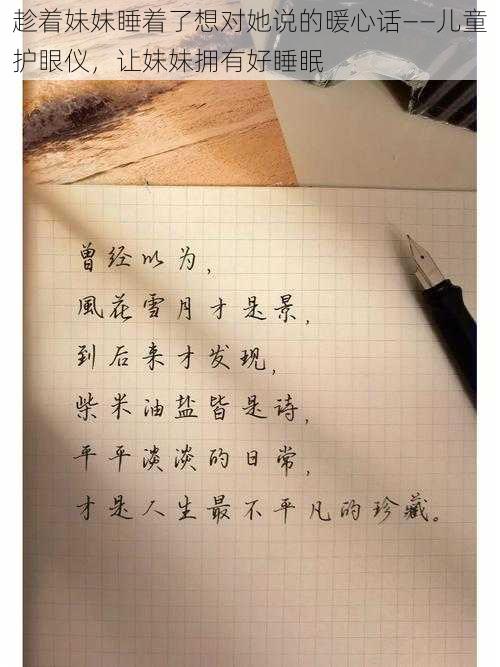 趁着妹妹睡着了想对她说的暖心话——儿童
护眼仪，让妹妹拥有好睡眠
曾经以为，
風花雪月才是景，
到后来才发现，
柴米油盐皆是诗，
平平淡淡的日常，
才是人生最不平凡的珍藏。